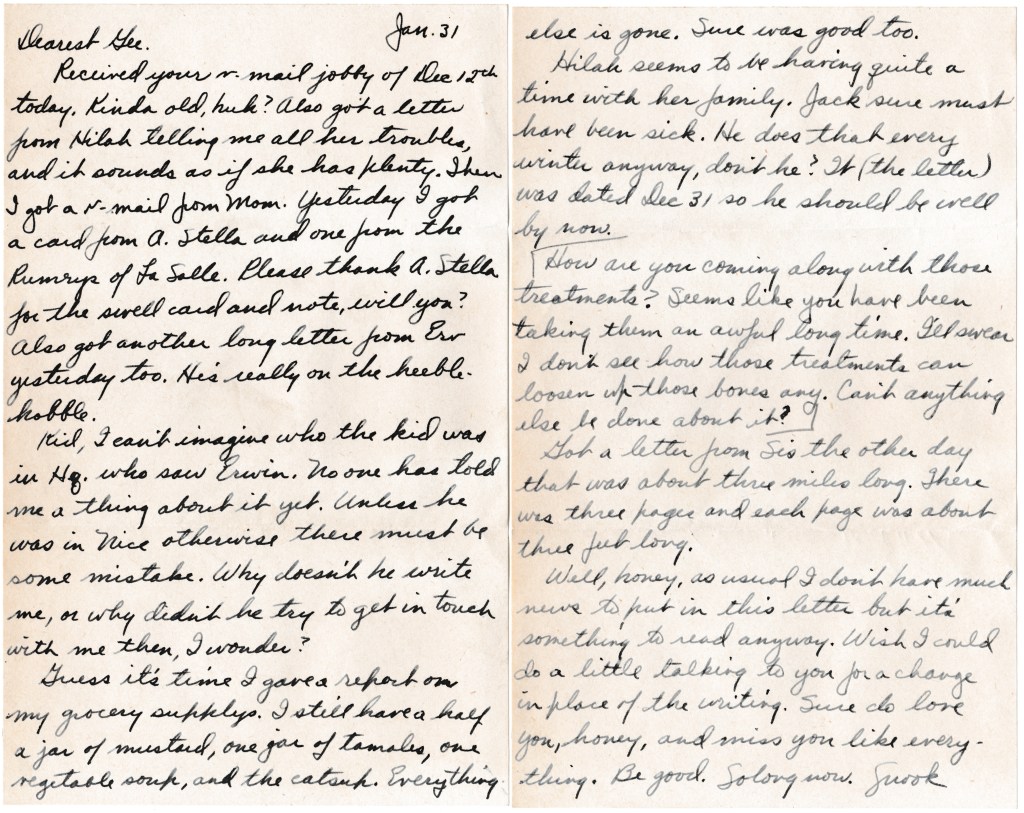 Jan. 31
Dearest Gee.
Received your v-mail jobby of Dec 12th
today. Kinda old, huh? Also got a letter
from Hilah telling me all her troubles,
and it sounds as if she has plenty. Then
I got a v-mail from Mom. Yesterday I got
a card from A. Stella and one from the
Rumrys of La Salle. Please thank A. Stella
for the swell card and note, will you?
Also got another long letter from Erv
yesterday too. He's really on the heeble-
hobble.
Kid, I can't imagine who the kid was
in Hq. who saw Erwin. No one has told
me a thing about it yet. Unless he
was in Nice otherwise there must be
some mistake. Why doesn't he write
me, or why didn't he try to get in touch
with me then, I wonder?
Guess it's time I gave a report on
my grocery supplys. I still have a half
a jar of mustard, one jar of tamales, one
vegetable soup, and the catsup. Everything
else is gone. Sure was good too.
Hilah seems to be having quite a
time with her family. Jack sure must
have been sick. He does that every
winter anyway, don't he? It (the letter)
was dated Dec 31 so he should be well
by now.
How are you coming along with those
treatments? Seems like you have been
taking them an awful long time. I'll swear
I don't see how those treatments can
loosen up those bones any. Can't anything
else be done about it?
Got a letter from Sis the other day
that was about three miles long. There
was three pages and each page was about
three feet long.
Well, honey, as usual I don't have much
news to put in this letter but it's
something to read anyway. Wish I could
do a little talking to you for a change
in place of the writing. Sure do love
you, honey, and miss you like every-
thing. Be good. So long now. Snook